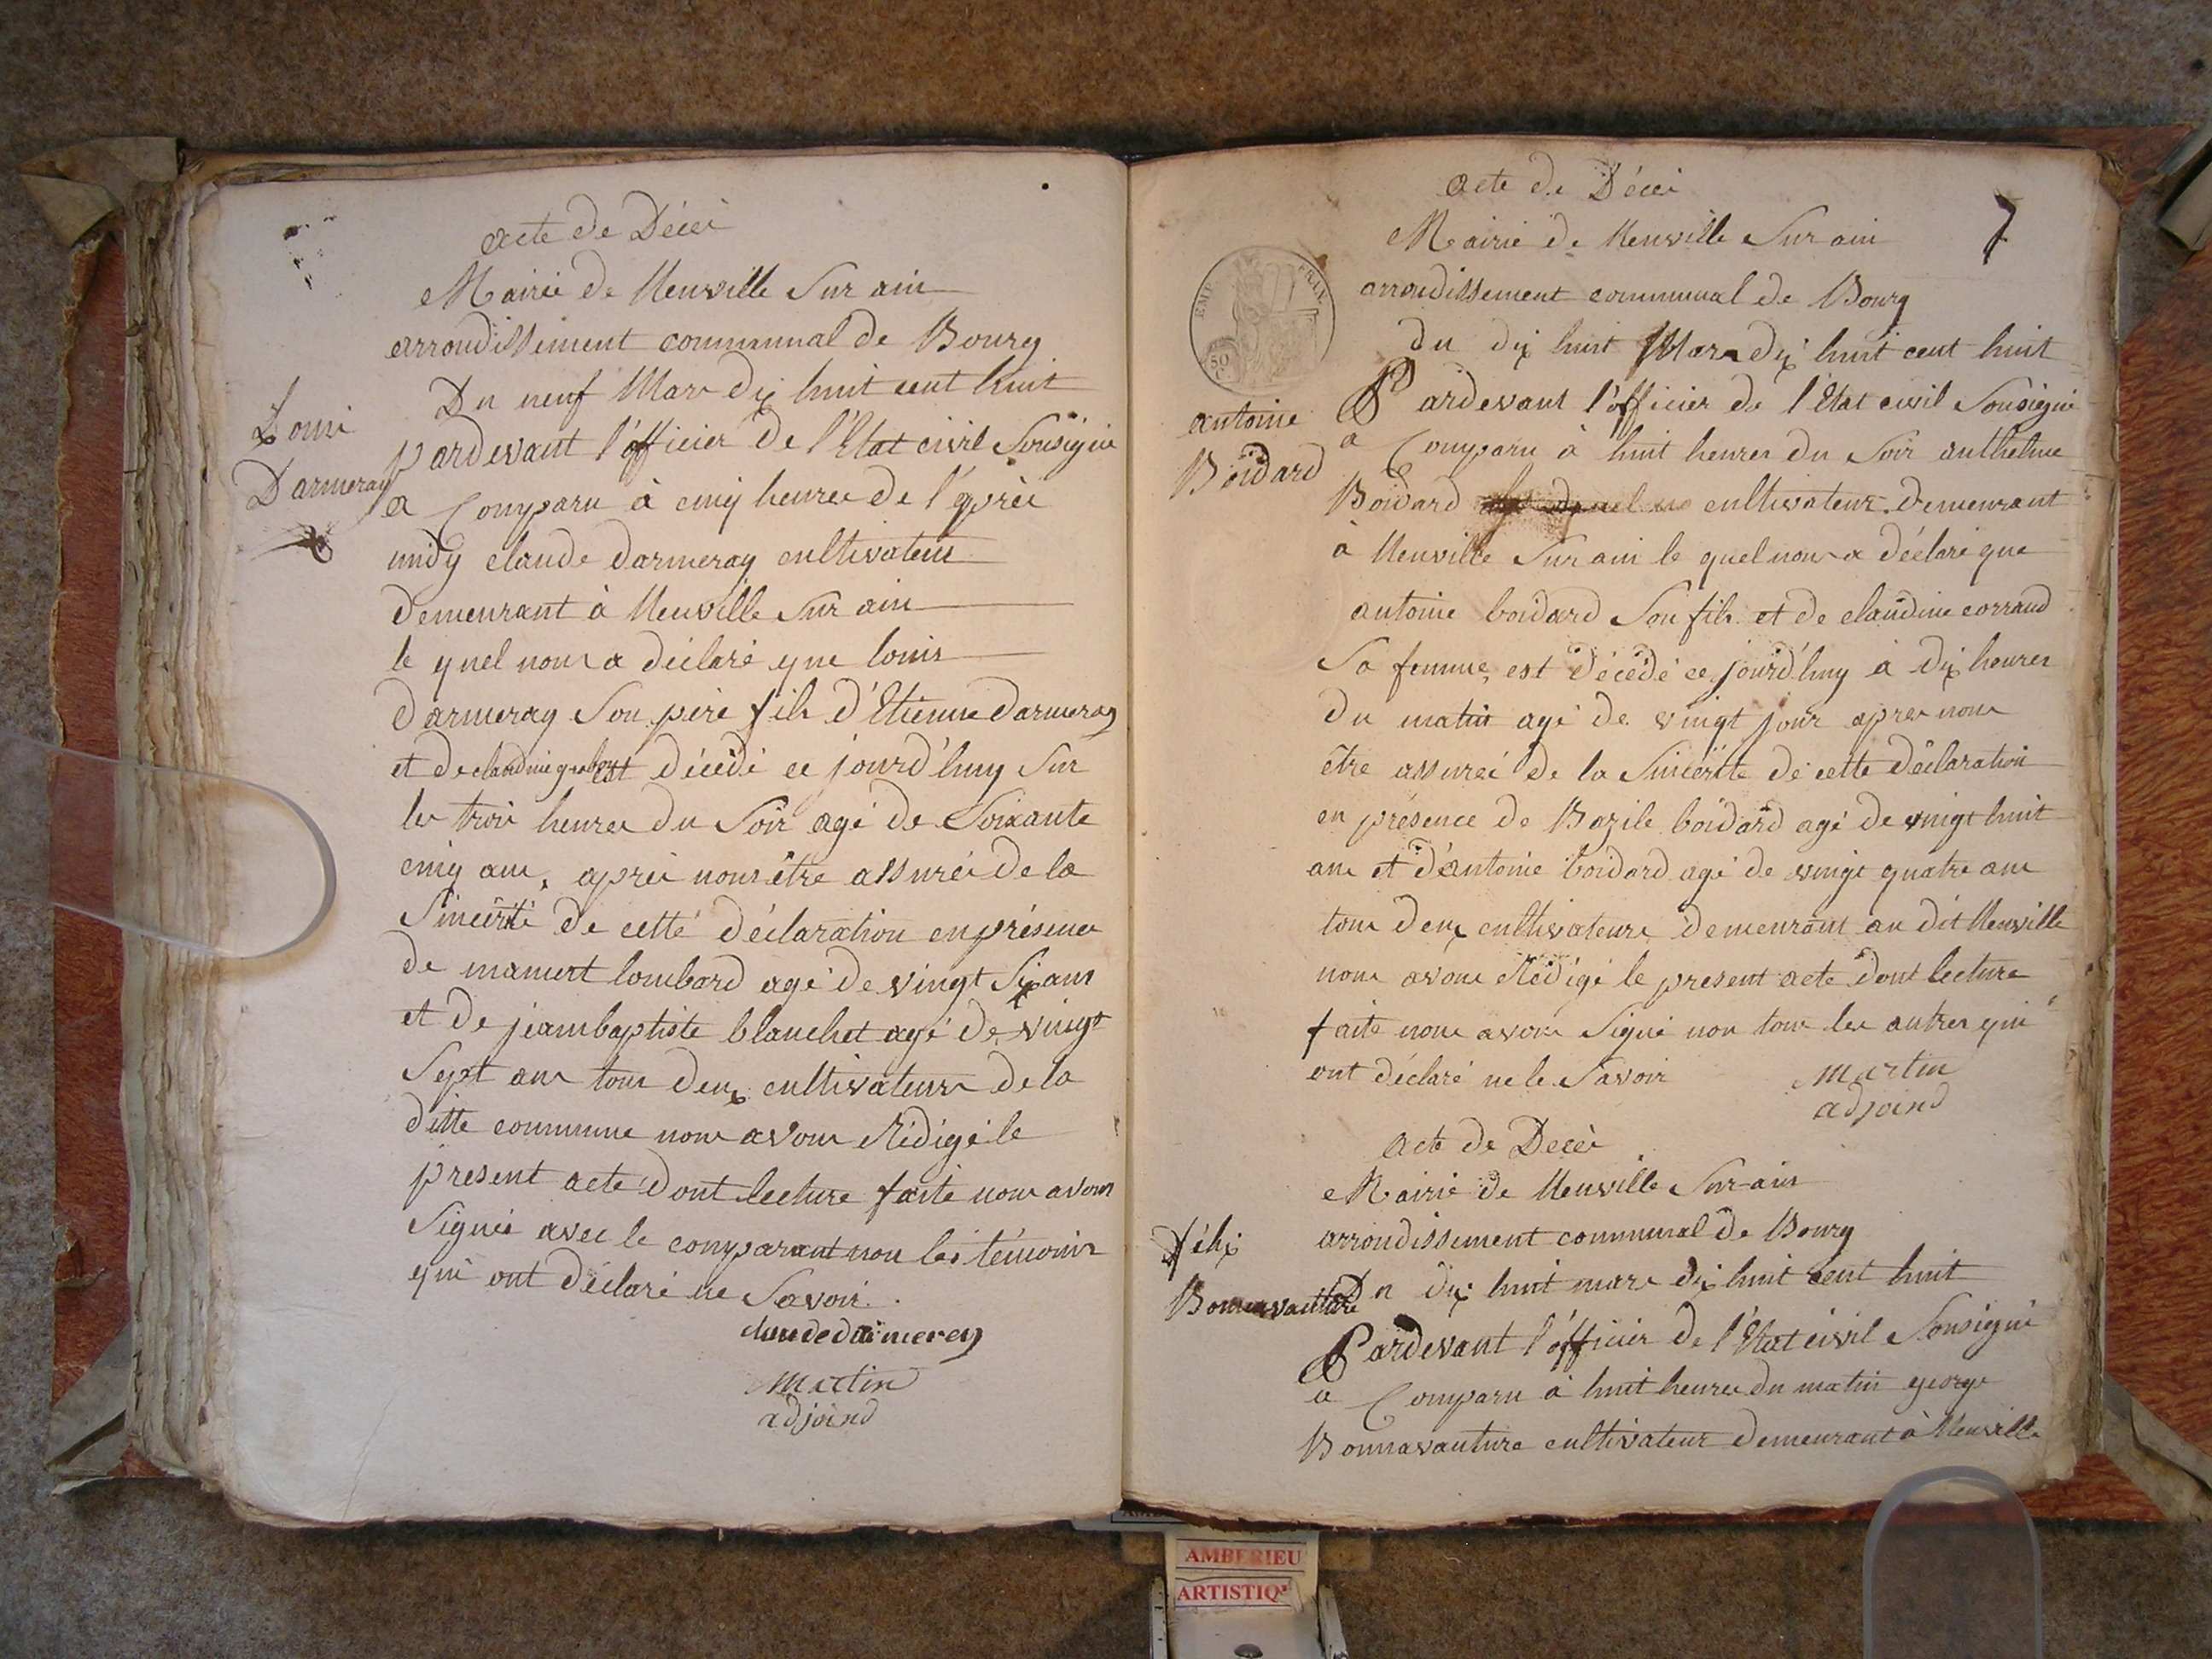 acte de Décès
Mairie de Neuville Sur ain
arrondissement communal de Bourg
Du neuf Mars dix huit cent huit
Louis
Darmeray
pardevant l'officier de l'Etat civil Sousigné
a Comparu à cinq heures de l'après
midy claude darmeray cultivateur
demeurant à Neuville Sur ain
le quel nous a déclaré que louis
darmeray Son père fils d'Etienne darmeray
et de claudine est décédé ce jourd'huy Sur
les trois heures du Soir agé de Soixante
cinq ans, après nous être assurés de la
Sincérité de cette déclaration en présence
de mamert lombard agé de vingt Six ans
et de jeanbaptiste blanchet agé de vingt
Sept ans tous deux cultivateurs de la
ditte commune nous avons Rédigé le
present acte dont lecture faite nous avons
Signés avec le comparant non les témoins
qui ont déclaré ne Savoir.
claude darmeray
Martin
adjoind
acte de Décès
7
Mairie de Neuville Sur ain
arrondissement communal de Bourg
EMP. FRAN.
50
C.
du dix huit Mars dix huit cent huit
antoine
Boidard
Pardevant l'officier de l'Etat civil Sousigné
a Comparu à huit heures du Soir anthelme
Boidard cultivateur demeurant
à Neuville Sur ain le quel nous a déclaré que
antoine boidard Son fils et de claudine corraud
Sa femme, est décédé ce jourd'huy à dix heures
du matin agé de vingt jour apres nous
être assurés de la Sincérité de cette déclaration
en présence de Bazile boidard agé de vingt huit
ans et d'antoine boidard agé de vingt quatre ans
tous deux cultivateurs demeurant au dit Neuville
nous avons Rédigé le present acte dont lecture
faite nous avons Signé non tous les autres qui
ont déclaré ne le Savoir
Martin
adjoind
Acte de Decès
Mairie de Neuville Sur ain
arrondissement communal de Bourg
Félix
Bonnavauture
Du dix huit mars dix huit cent huit
Pardevant l'officier de l'Etat civil Sousigné
a Comparu à huit heures du matin george
Bonnavauture cultivateur demeurant à Neuville
AMBERIEU
ARTISTIQ